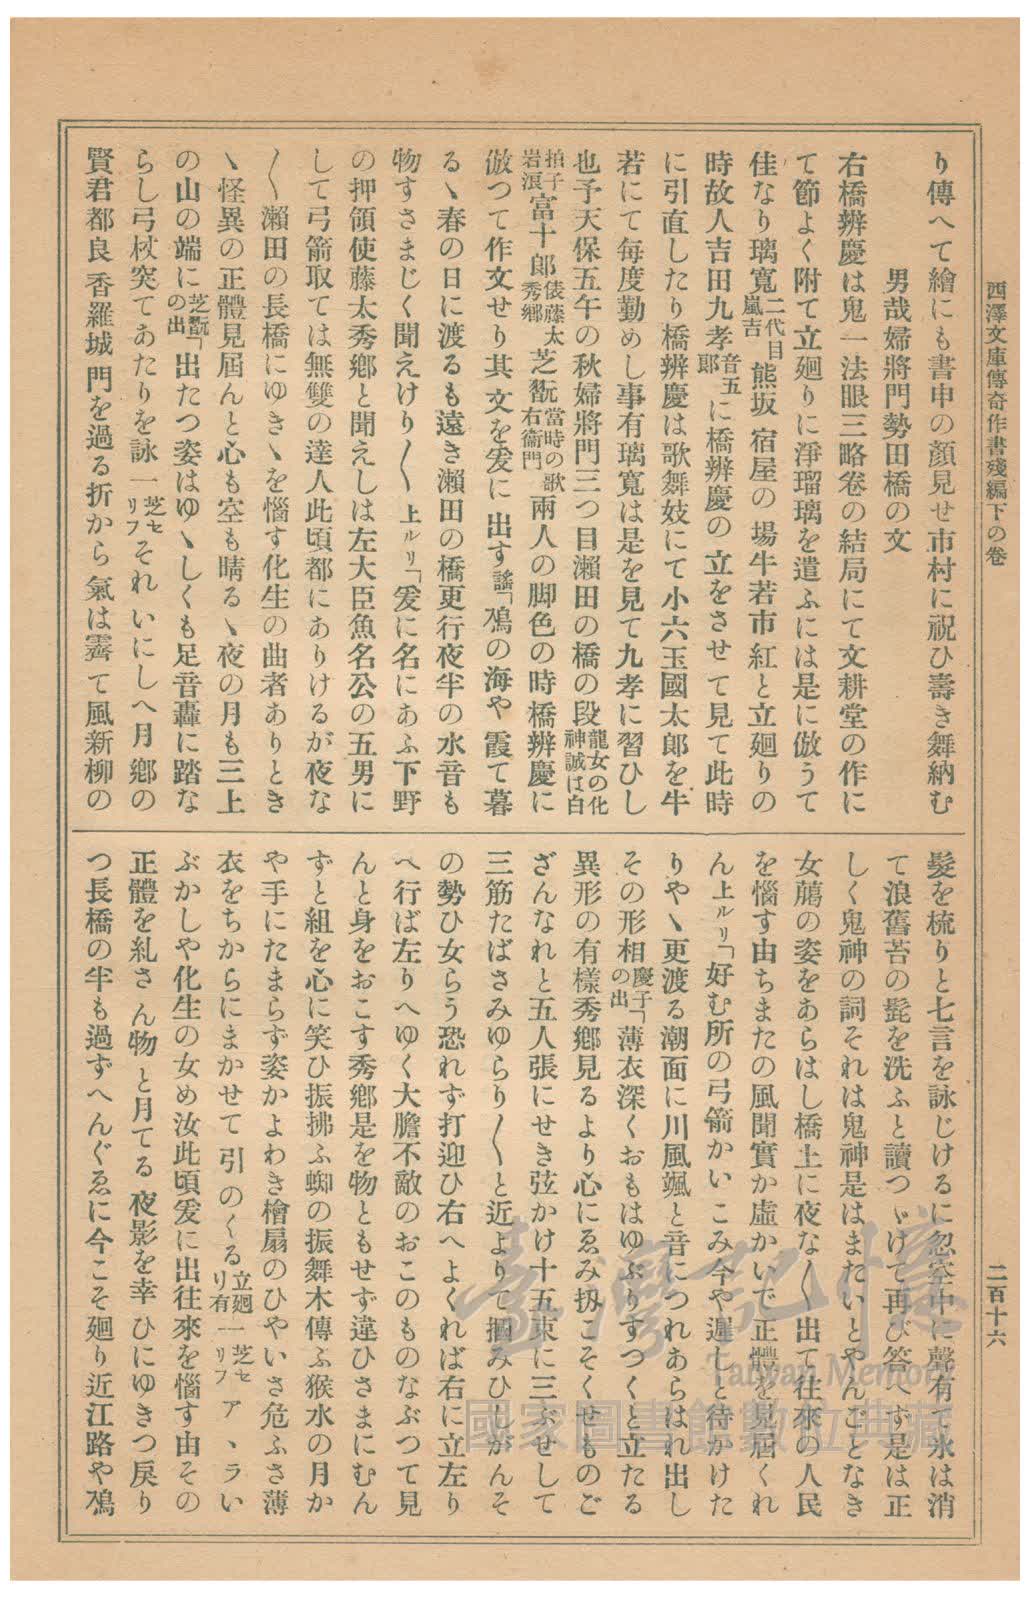 西澤文庫傳奇作書殘編下の卷
二百十六
り傳へて繪にも書申の顏見せ市村に祝ひ壽き舞納む
男哉婦將門勢田橋の文
右橋辨慶は鬼一法眼三略卷の結局にて文耕堂の作に
て節よく附て立廻りに淨瑠璃を遣ふには是に倣うて
佳なり璃寬二代目嵐吉熊坂宿屋の場牛若市紅と立廻りの
時故人吉田九孝音五郎に橋辨慶の立をさせて見て此時
に引直したり橋辨慶は歌舞妓にて小六玉國太郎を牛
若にて每度勤めし事有璃寬は是を見て九孝に習ひし
也予天保五午の秋婦將門三つ目瀨田の橋の段龍女の化神誠は白
拍子岩浪富十郎俵藤太秀鄕芝翫當時の歌右衞門兩人の脚色の時橋辨慶に
倣つて作文せり其文を爰に出す謠「鳰の海や霞て暮
るヽ春の日に渡るも遠き瀨田の橋更行夜半の水音も
物すさまじく聞えけり〱上ルリ「爰に名にあふ下野
の押領使藤太秀鄕と聞えしは左大臣魚名公の五男に
して弓箭取ては無雙の達人此頃都にありけるが夜な
〱瀨田の長橋にゆきヽを惱す化生の曲者ありとき
ヽ怪異の正體見屆んと心も空も晴るヽ夜の月も三上
の山の端に芝翫の出「出たつ姿はゆヽしくも足音轟に踏な
らし弓杖突てあたりを詠一芝セリフそれいにしへ月鄕の
賢君都良香羅城門を過る折から氣は霽て風新柳の
髮を梳りと七言を詠じけるに忽空中に聲有て氷は消
て浪舊苔の髭を洗ふと讀つゞけて再び答へず是は正
しく鬼神の詞それは鬼神是はまたいとやんごとなき
女﨟の姿をあらはし橋上に夜な〱出て往來の人民
を惱す由ちまたの風聞實か虛かいで正體を見屆くれ
ん上ルリ「好む所の弓箭かいこみ今や遲しと待かけた
りやヽ更渡る潮面に川風颯と音につれあらはれ出し
その形相慶子の出「薄衣深くおもはゆぶりすつくと立たる
異形の有樣秀鄕見るより心にゑみ扨こそくせものご
ざんなれと五人張にせき弦かけ十五束に三ぶせして
三筋たばさみゆらり〱と近よりて摑みひしがんそ
の勢ひ女らう恐れず打迎ひ右へよくれば右に立左り
へ行ば左りへゆく大膽不敵のおこのものなぶつて見
んと身をおこす秀鄕是を物ともせず違ひさまにむん
ずと組を心に笑ひ振拂ふ蜘の振舞木傳ふ猴水の月か
や手にたまらず姿かよわき檜扇のひやいさ危ふさ薄
衣をちからにまかせて引のくる立廻リ有一芝セリフアヽラい
ぶかしや化生の女め汝此頃爰に出往來を惱す由その
正體を糺さん物と月てる夜影を幸ひにゆきつ戾り
つ長橋の半も過ずへんぐゑに今こそ廻り近江路や鳰
臺灣記憶
Taiwan Memory
國家圖書館數位典藏